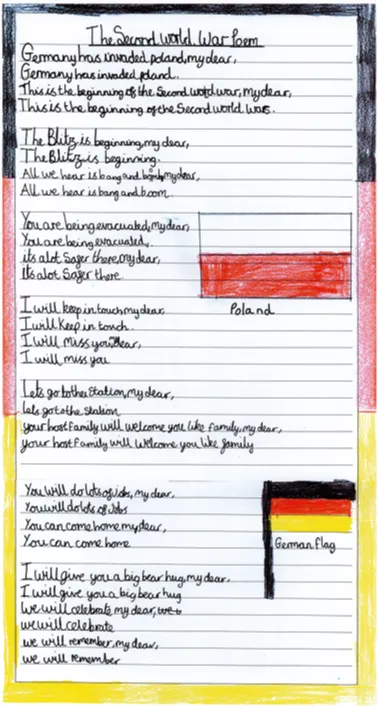 The Second World War Poem
Germany has invaded poland, my dear,
Germany has invaded poland.
This is the beginning of the Second world war, my dear,
This is the beginning of the Second world war.
The Blitz is beginning, my dear,
The Blitz is beginning.
All we hear is bang and boom, my dear,
All we hear is bang and boom.
You are being evacuated, my dear,
You are being evacuated,
its alot Safer there, my dear,
its alot Safer there.
Poland
I will keep in touch my dear,
I will Keep in touch.
I will miss you dear,
I will miss you
Lets go to the Station, my dear,
lets go to the Station
your host family will welcome you like family, my dear,
your host family will welcome you like family
You will do lots of jobs, my dear,
You will do lots of Jobs
You can come home my dear,
You can come home
German flag
I will give you a big bear hug, my dear,
I will give you a big bear hug
We will celebrate my dear,
we will celebrate
we will remember, my dear,
we will remember